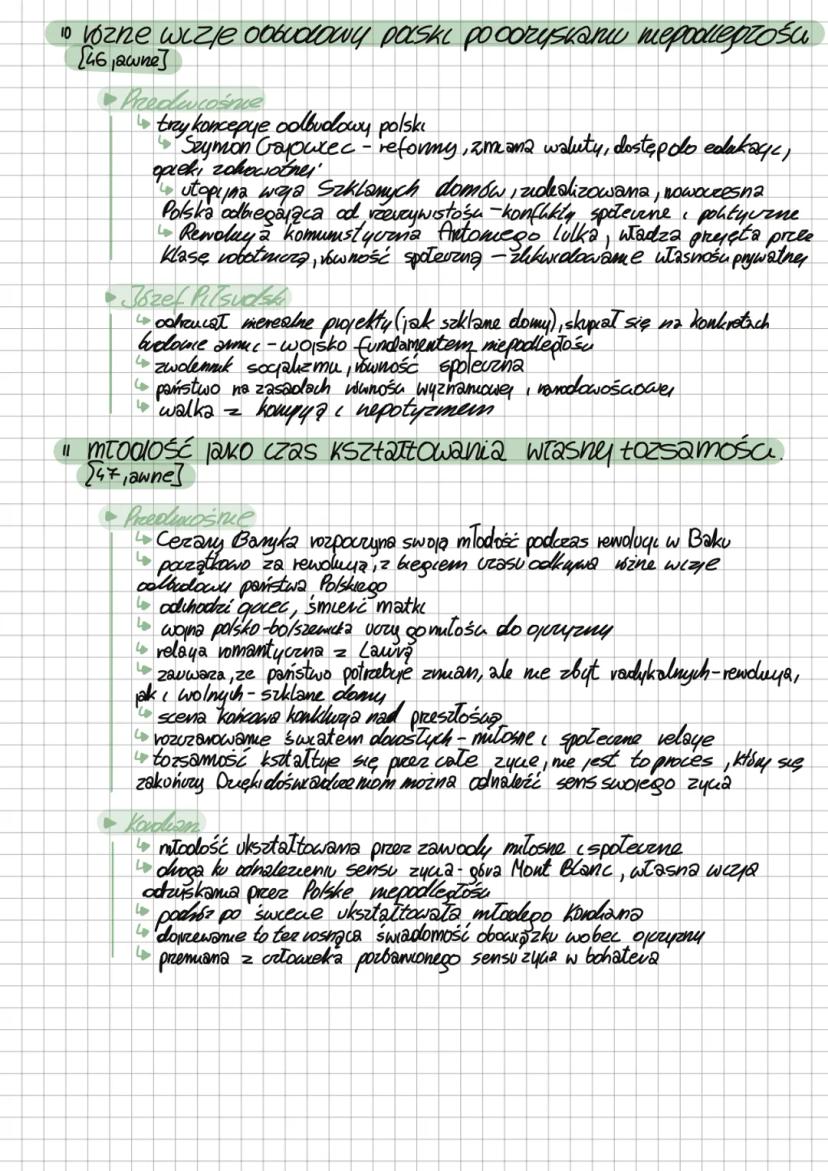 10 różne wizje odbudowy polski po odzyskaniu niepodległości
[46, jawne]
Przedwiośnie
↳ trzy koncepcje odbudowy polski
↳ Szymon Gajowiec - reformy, zmiana waluty, dostęp do edukacji,
opieki zdrowotnej
↳ utopijna wizja Szklanych domów, zidealizowana, nowoczesna
Polska odbiegająca od rzeczywistości - konflikty społeczne i polityczne
↳ Rewolucja komunistyczna Antoniego Lulka, władza przejęta przez
klasę robotniczą, równość społeczną - zlikwidowanie własności prywatnej
Józef Piłsudski
↳ odrzucał nierealne projekty (jak szklane domy), skupiał się na konkretach
budowie armii - wojsko fundamentem niepodległości
↳ zwolennik socjalizmu, równość społeczna
↳ państwo na zasadach równości wyznaniowej i narodowościowej
↳ walka z korupcją i nepotyzmem
11 młodość jako czas kształtowania własnej tożsamości.
[47, jawne]
Przedwiośnie
↳ Cezary Baryka rozpoczyna swoją młodość podczas rewolucji w Baku
↳ początkowo za rewolucją, z biegiem czasu odkrywa różne wizje
odbudowy państwa Polskiego
↳ odchodzi ojciec, śmierć matki
↳ wojna polsko-bolszewicka uczy go miłości do ojczyzny
↳ relacja romantyczna z Laurą
↳ zauważa, że państwo potrzebuje zmian, ale nie zbyt radykalnych - rewolucja,
jak i wolnych - szklane domy
↳ scena końcowa konkluzja nad przeszłością
↳ rozczarowanie światem dorosłych - miłosne i społeczne relacje
↳ tożsamość kształtuje się przez całe życie, nie jest to proces, który się
zakończy Dzięki doświadczeniom można odnaleźć sens swojego życia
Kordian
↳ młodość ukształtowana przez zawody miłosne i społeczne
↳ droga ku odnalezieniu sensu życia - góra Mont Blanc, własna wizja
odzyskania przez Polskę niepodległości
↳ podróż po świecie ukształtowała młodego Kordiana
↳ dojrzewanie to też rosnąca świadomość obowiązku wobec ojczyzny
↳ przemiana z człowieka pozbawionego sensu życia w bohatera